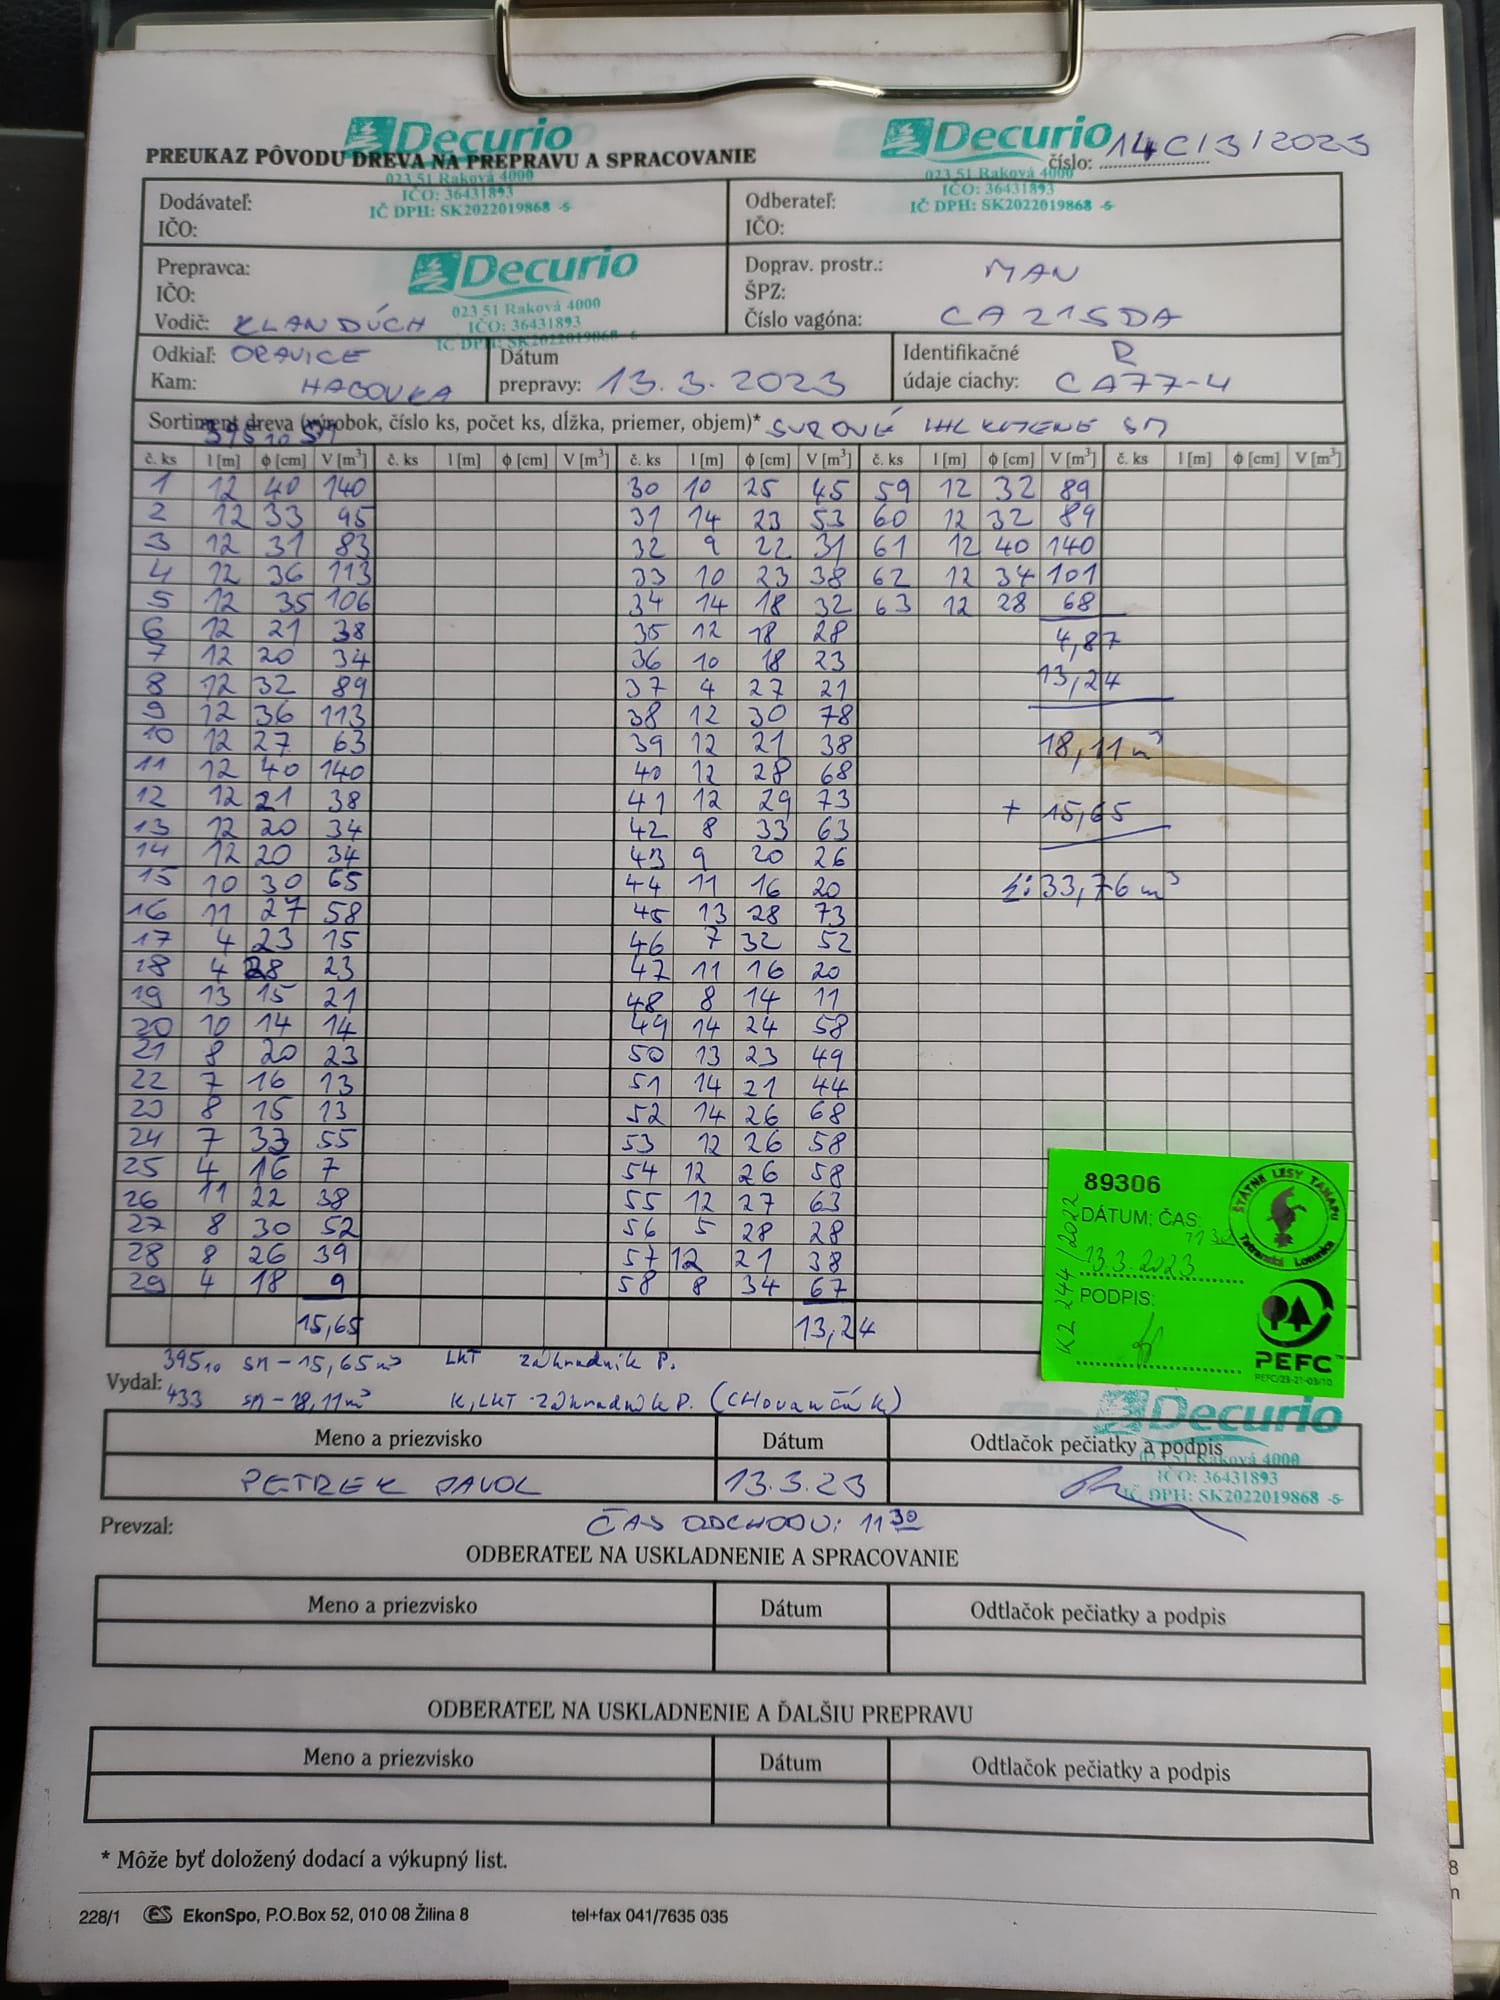 Decurio
Decurio
PREUKAZ PÔVODU DREVA NA PREPRAVU A SPRACOVANIE
číslo: 14C/3/2023
023 51 Raková 4000
IČO: 36431893
IČ DPH: SK2022019868 -5-
023 51 Raková 4000
IČO: 36431893
IČ DPH: SK2022019868 -5-
Dodávateľ:
IČO:
Odberateľ:
IČO:
Prepravca:
IČO:
Vodič: KLANDÚCH
Decurio
023 51 Raková 4000
IČO: 36431893
IČ DPH: SK2022019868 -6-
Doprav. prostr.: MAN
ŠPZ:
Číslo vagóna: CA215DA
Odkiaľ: ORAVICE
Kam: HABOVKA
Dátum
prepravy: 13.3.2023
Identifikačné R
údaje ciachy: CA77-4
Sortiment dreva (výrobok, číslo ks, počet ks, dĺžka, priemer, objem)* SUROVÉ IHL KMENE SM
395 10 SM
č. ks l [m] ϕ [cm] V [m³] č. ks l [m] ϕ [cm] V [m³] č. ks l [m] ϕ [cm] V [m³] č. ks l [m] ϕ [cm] V [m³] č. ks l [m] ϕ [cm] V [m³]
1 12 40 140 30 10 25 45 59 12 32 89
2 12 33 95 31 14 23 53 60 12 32 89
3 12 31 83 32 9 22 31 61 12 40 140
4 12 36 113 33 10 23 38 62 12 34 101
5 12 35 106 34 14 18 32 63 12 28 68
6 12 21 38 35 12 18 28 4,87
7 12 20 34 36 10 18 23
8 12 32 89 37 4 27 21 13,24
9 12 36 113 38 12 30 78
10 12 27 63 39 12 21 38 18,11 m³
11 12 40 140 40 12 28 68
12 12 21 38 41 12 29 73 + 15,65
13 12 20 34 42 8 33 63
14 12 20 34 43 9 20 26
15 10 30 65 44 11 16 20 Σ: 33,76 m³
16 11 27 58 45 13 28 73
17 4 23 15 46 7 32 52
18 4 28 23 47 11 16 20
19 13 15 21 48 8 14 11
20 10 14 14 49 14 24 58
21 8 20 23 50 13 23 49
22 7 16 13 51 14 21 44
23 8 15 13 52 14 26 68
24 7 33 55 53 12 26 58
25 4 16 7 54 12 26 58
26 11 22 38 55 12 27 63
27 8 30 52 56 5 28 28
28 8 26 39 57 12 21 38
29 4 18 9 58 8 34 67
15,65 13,24
89306
DÁTUM; ČAS:
11 30
13.3.2023
PODPIS:
K2 244/2022
ŠTÁTNE LESY TANAPU
Tatranská Lomnica
PEFC
PEFC/23-21-03/10
395 10 SM - 15,65 m³ LKT Záhradník P.
Vydal:
433 SM - 18,11 m³ K, LKT Záhradník P. (CHovančák)
Decurio
023 51 Raková 4000
IČO: 36431893
IČ DPH: SK2022019868 -5-
Meno a priezvisko Dátum Odtlačok pečiatky a podpis
PETREK PAVOL 13.3.23
Prevzal: ČAS ODCHODU: 11 30
ODBERATEĽ NA USKLADNENIE A SPRACOVANIE
Meno a priezvisko Dátum Odtlačok pečiatky a podpis
ODBERATEĽ NA USKLADNENIE A ĎALŠIU PREPRAVU
Meno a priezvisko Dátum Odtlačok pečiatky a podpis
* Môže byť doložený dodací a výkupný list.
228/1 ES EkonSpo, P.O.Box 52, 010 08 Žilina 8 tel+fax 041/7635 035